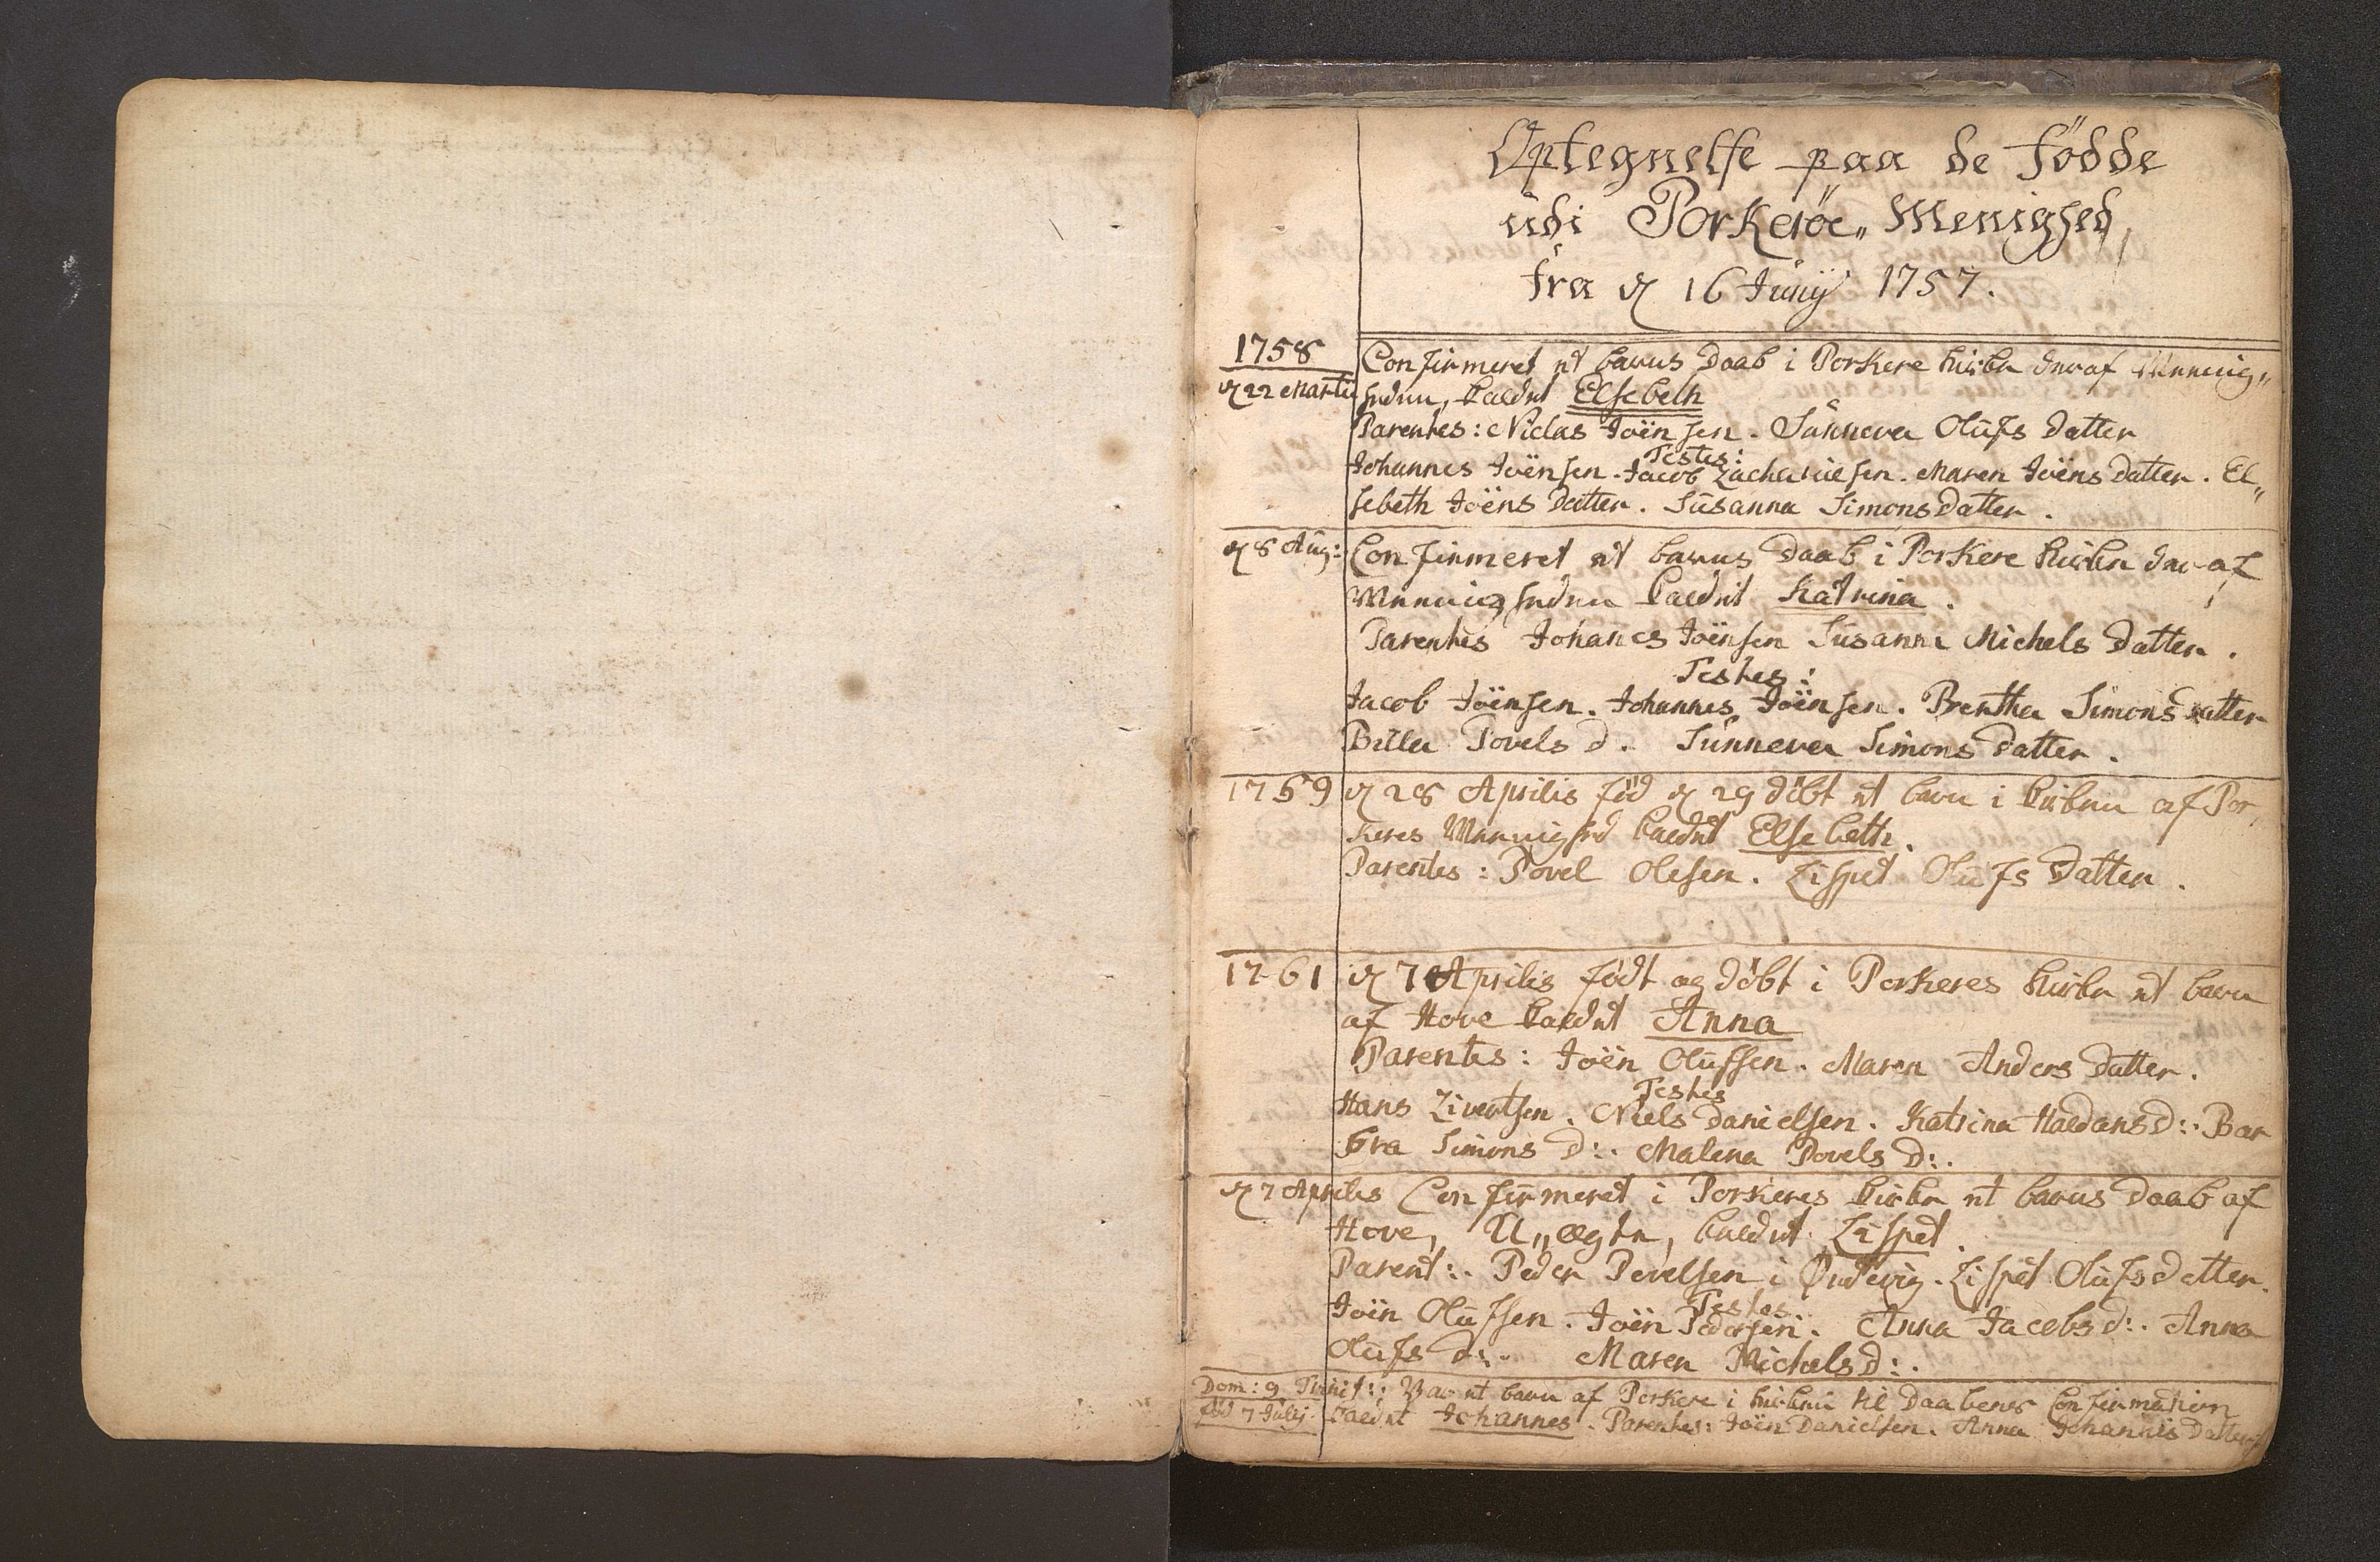 Optegnelse paa de fødde
udi Porkeröe„ Menighed,
fra d 16 Junij 1757.
1758
d 22 Martii
Confirmeret et barns Daab i Porkere kirke her af Mennig„
heden, kaldet Elsebeth
Parentes: Niclas Joënsen. Sunneva Olufs Datter
Testes:
Johannes Joënsen. Jacob Zachariesen. Maren Joëns Datter. El„
sebeth Joëns Datter. Susanna Simons Datter.
d 8 Aug:
Confirmeret et barns Daab i Porkere kirke her af
Mennigheden kaldet Katrina.
Parentes Johanes Joënsen Susanna Michels Datter.
Testes:
Jacob Joënsen. Johannes Joënsen. Brentha Simons Datter
Billa Povels d. Sunneva Simons Datter.
1759
d 28 Aprilis föd d 29 döbt et barn i kirken af Por„
keres Mennighed kaldet Elsebeth.
Parentes: Povel Olesen. Lispet Olufs Datter.
1761
d 7 Aprilis födt og döbt i Porkeres kirke et barn
af Hove kaldet Anna
Parentes: Joën Olufsen. Maren Anders Datter.
Testes
Hans Zivertsen. Niels Danielsen. Katrina Haldans D:. Bar
bra Simons D:. Malena Povels D:.
d 7 Aprilis
Confirmeret i Porkeres kirke et barns Daab af
Hove, U„ægte, kaldet Lispet.
Parent:. Peder Povelsen i Ørdevig. Lispet Olufsdatter.
Testes
Joën Olufsen. Joën Pedersen. Anna Jacobs d:. Anna
Olufs d:. Maren Michels d:.
Dom: 9 Trinit:
7 Julij.
Var et barn af Porkere i kirken til Daabens Confirmation
kaldet Johannes. Parentes: Joën Danielsen. Anna Johannis Datter